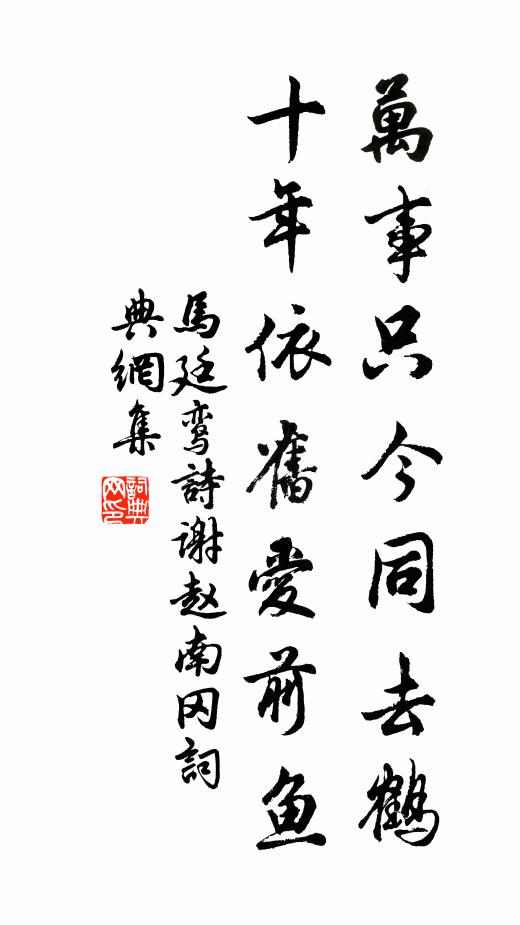 萬事只今同去鶴
十年依舊愛前鱼
馬廷鸾詩谢赵南冈詞
典網集
詞典
网印